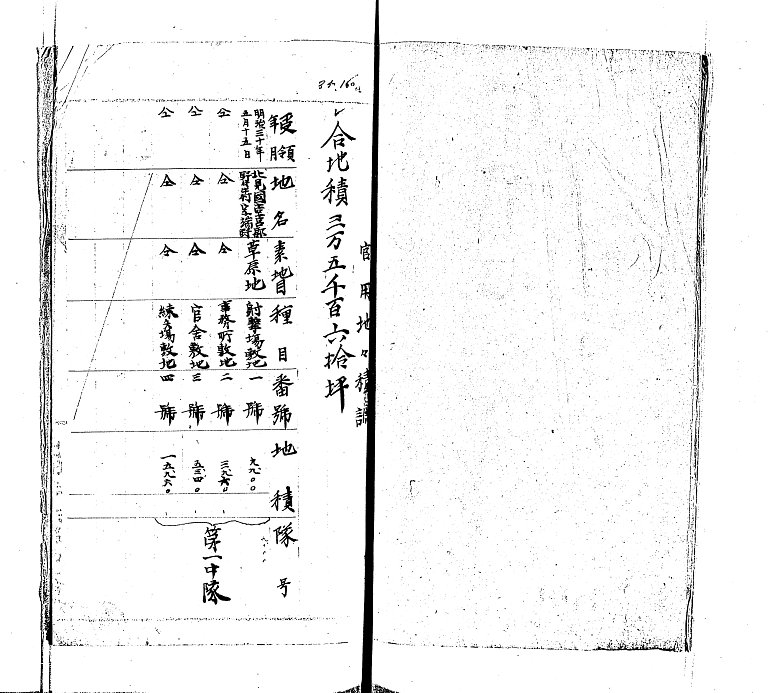 官用地々積調
35,160
合地積三万五千百六拾坪
受領年月 地名 素地目 種目 番號 地積 隊号
明治三十年五月十五日 北見國常呂郡野付牛村字端野 草原地 射撃場敷地 一號 九九〇〇
仝 仝 仝 事務所敷地 二號 三九六〇
仝 仝 仝 官舍敷地 三號 五三四〇
仝 仝 仝 練兵場敷地 四號 一五九六〇
第一中隊